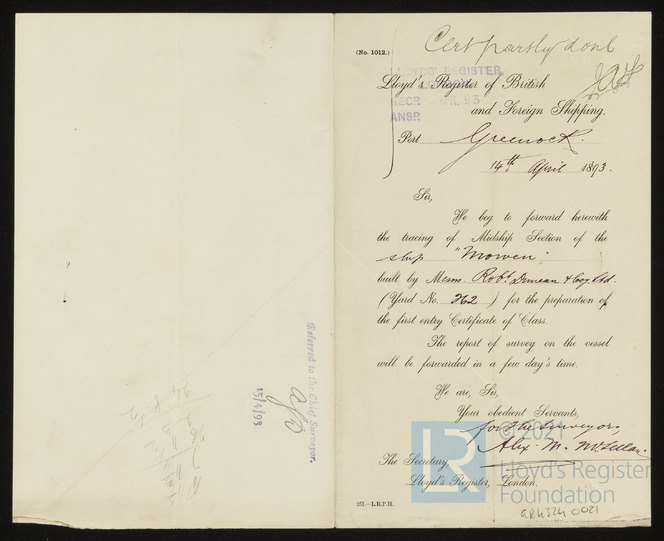 (No. 1012.)
Cert partly done
LLOYD'S REGISTER,
Lloyd's Register of British
RECD APR. 93
and Foreign Shipping,
Port Greenock.
14th April 1893.
Sir,
We beg to forward herewith
the tracing of Midship Section of the
ship "Mowen"
built by Messrs. Robt. Duncan & Coy Ltd.
(Yard No. 262) for the preparation of
the first entry Certificate of Class.
The report of survey on the vessel
will be forwarded in a few day's time.
We are, Sir,
Your obedient Servants,
for the Surveyors,
Alex. M. McLellan
The Secretary,
Lloyd's Register, London.
Referred to the Chief Surveyor.
15/4/93
© 2021
LR
Lloyd's Register
Foundation